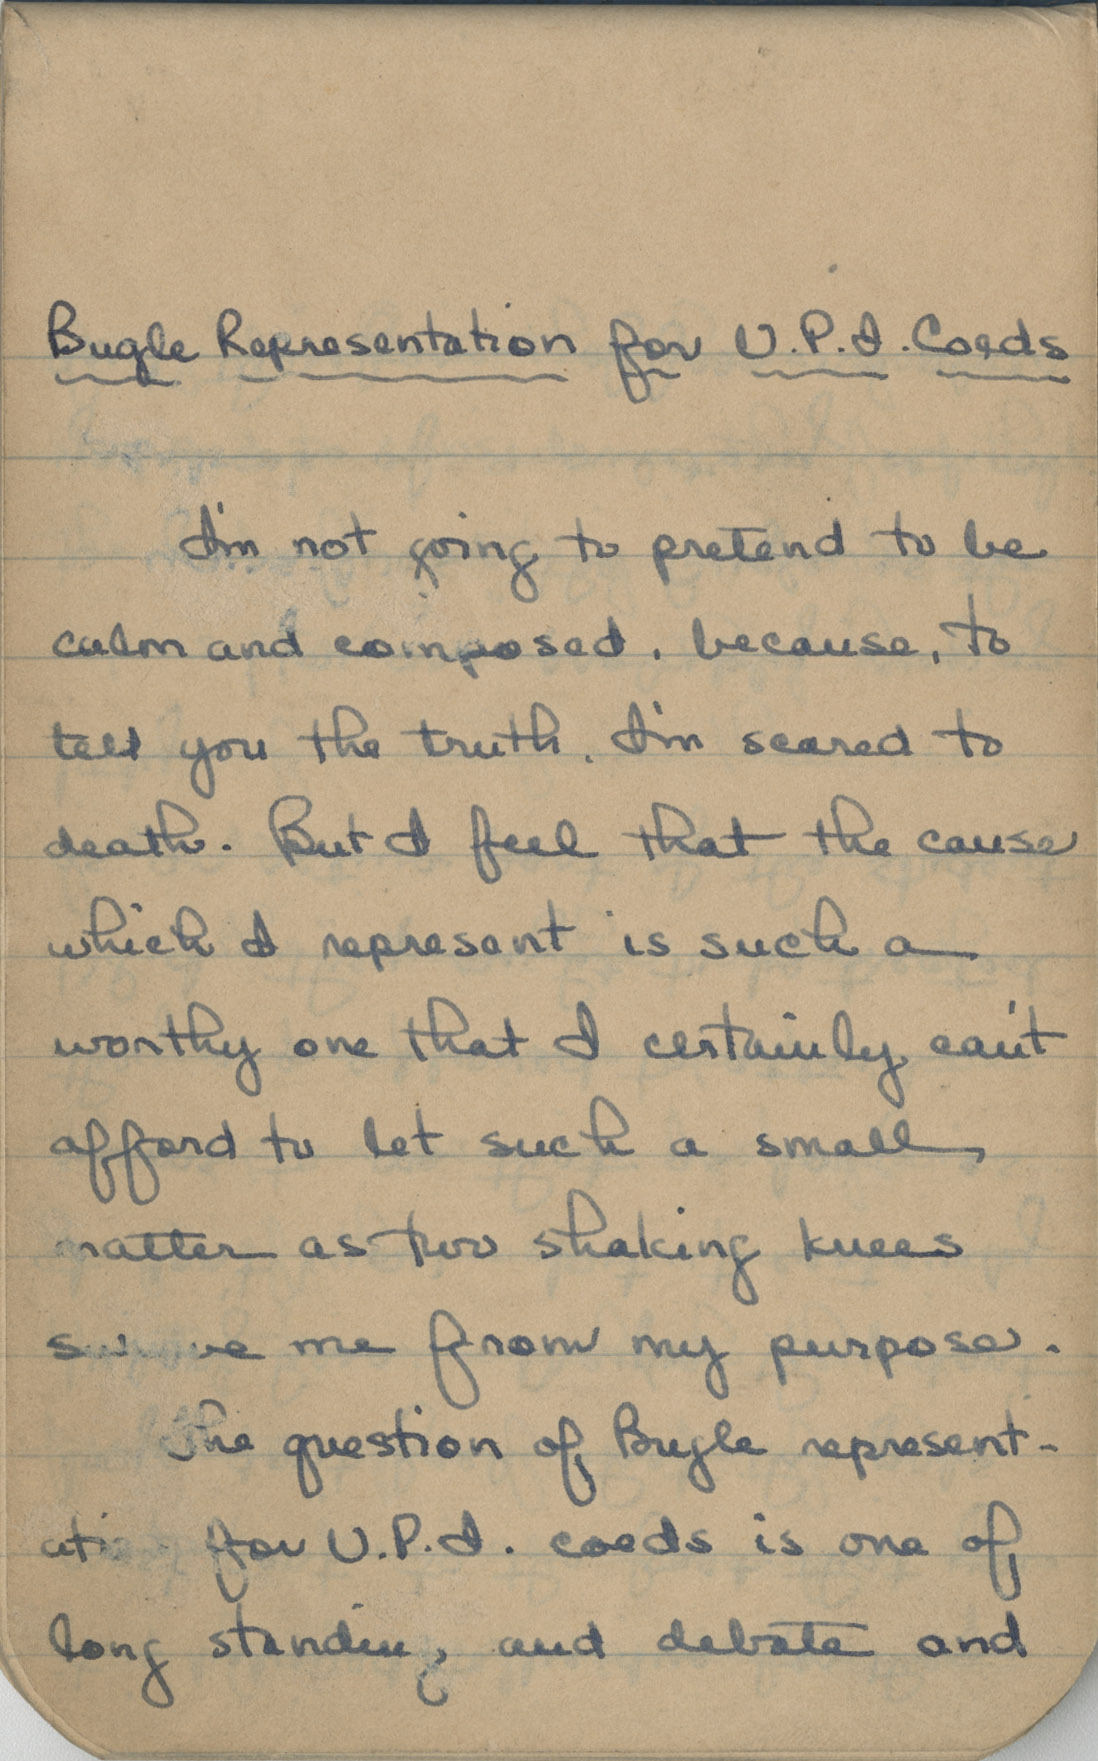 Bugle Representation for V.P.I. Coeds
I'm not going to pretend to be
calm and composed, because, to
tell you the truth, I'm scared to
death. But I feel that the cause
which I represent is such a
worthy one that I certainly can't
afford to let such a small
matter as two shaking knees
me from my purpose.
The question of Bugle represent-
ation for V.P.I. coeds is one of
long standing, and debate and